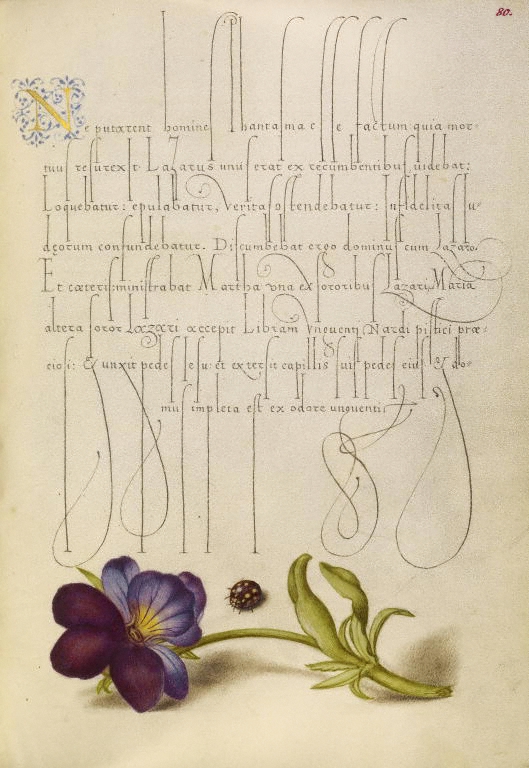 80.
Ne putarent homines phantasma esse factum quia mor-
tuus resurexit. Lazarus unus erat ex recumbentibus, uidebat:
Loquebatur: epulabatur, Veritas ostendebatur: infidelitas Iu-
dęorum confundebatur. Discumbebat ergo dominus cum Lazaro.
Et cæteris: ministrabat Martha vna ex sororibus Lazari. Maria
altera soror Lazari accepit Libram vnguenti Nardi pistici præ-
ciosi: & unxit pedes Iesu: et extersit capillis suis pedes eius & do-
mus impleta est ex odore unguenti.